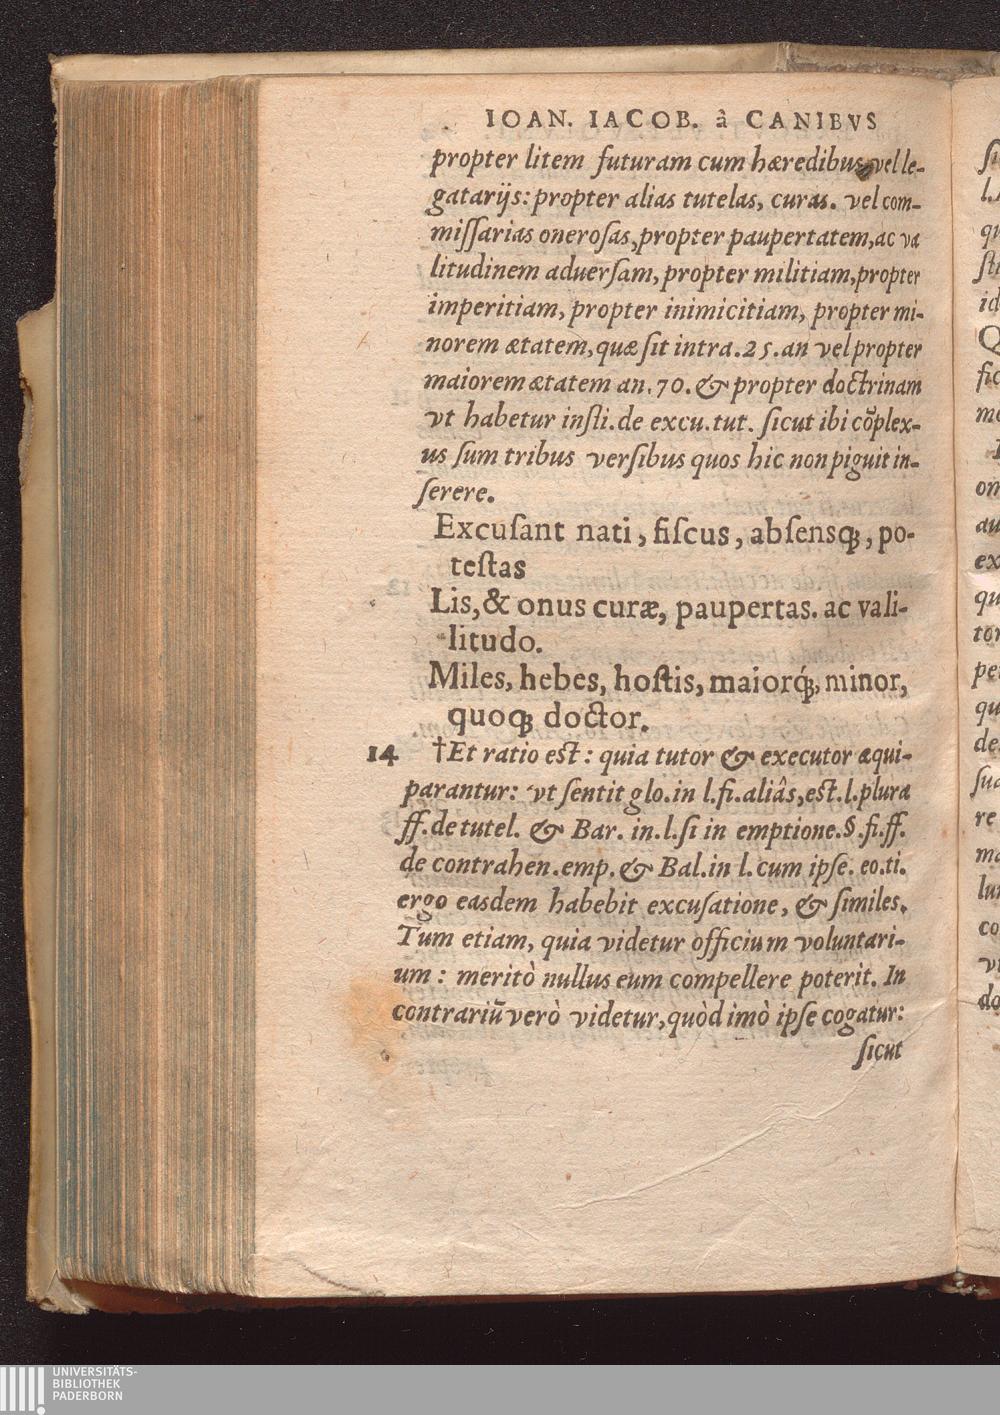 IOAN. IACOB. à CANIBVS
propter litem futuram cum hæredibus, vel le-
gatarijs: propter alias tutelas, curas. vel com-
miſſarias oneroſas, propter paupertatem, ac va
litudinem aduerſam, propter militiam, propter
imperitiam, propter inimicitiam, propter mi-
norem ætatem, quæ ſit intra. 25. an vel propter
maiorem ætatem an. 70. & propter doctrinam
vt habetur inſti. de excu. tut. ſicut ibi cõplex-
us ſum tribus verſibus quos hic non piguit in-
ſerere.
Excuſant nati, fiſcus, abſensq́;, po-
teſtas
Lis, & onus curæ, paupertas. ac vali-
litudo.
Miles, hebes, hoſtis, maiorq́;, minor,
quoq; doctor.
14 †Et ratio eſt: quia tutor & executor æqui-
parantur: vt ſentit glo. in l. fi. aliâs, eſt. l. plura
ff. de tutel. & Bar. in. l. ſi in emptione. §. fi. ff.
de contrahen. emp. & Bal. in l. cum ipſe. eo. ti.
ergo easdem habebit excuſatione, & ſimiles.
Tum etiam, quia videtur officium voluntari-
um: meritò nullus eum compellere poterit. In
contrariũ verò videtur, quòd imò ipſe cogatur:
ſicut
ſi
l.
qu
ſti
id
Q
fic
me
om
au
ex
qu
tor
per
qu
de
ſua
re
ma
lun
co
vt
do
UNIVERSITÄTS-
BIBLIOTHEK
PADERBORN